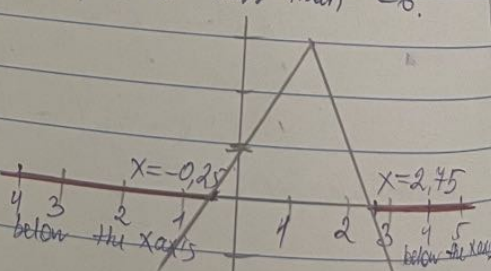 =0.
x=-0,25 x=2,75
4 3 2 1 1 2 3 4 5
below the xaxis below the xaxis